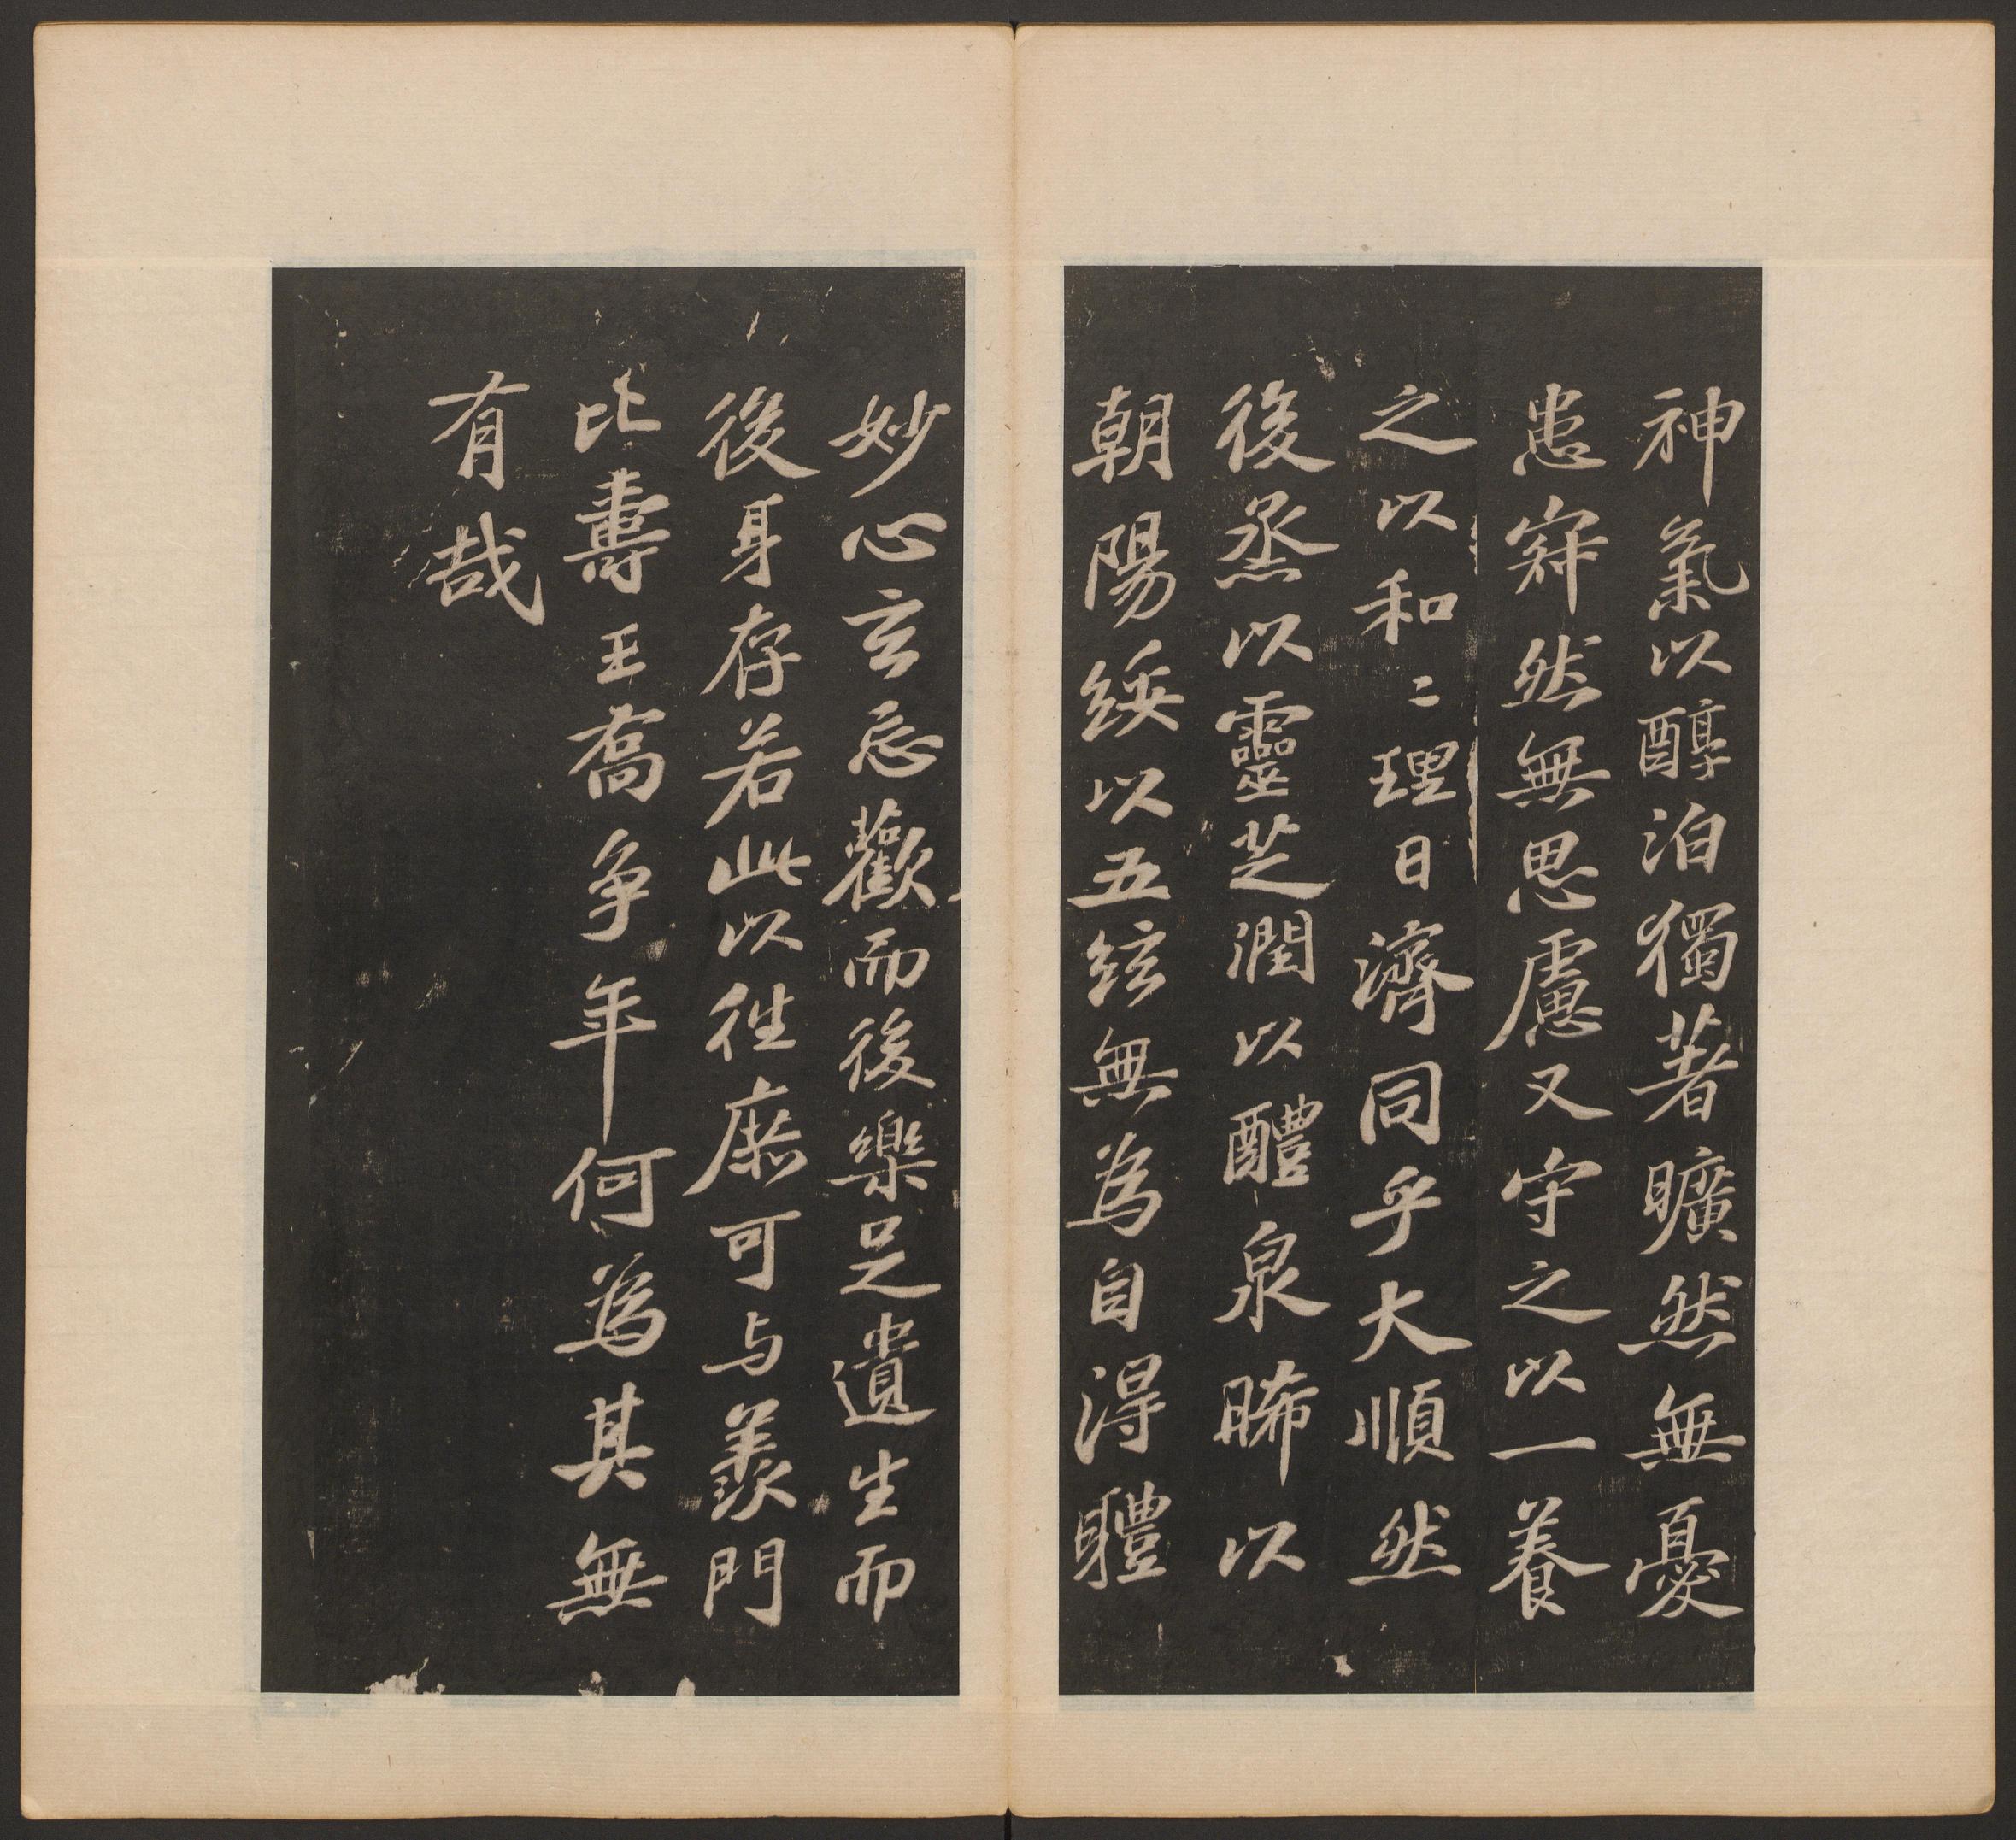 神氣以醇泊獨著曠然無憂
患寂然無思慮又守之以一養
之以和〻理日濟同乎大順然
後烝以靈芝潤以醴泉晞以
朝陽綏以五絃無為自得軆
妙心玄忘歡而後樂足遺生而
後身存若此以往庶可与羨門
比壽王喬爭年何為其無
有哉